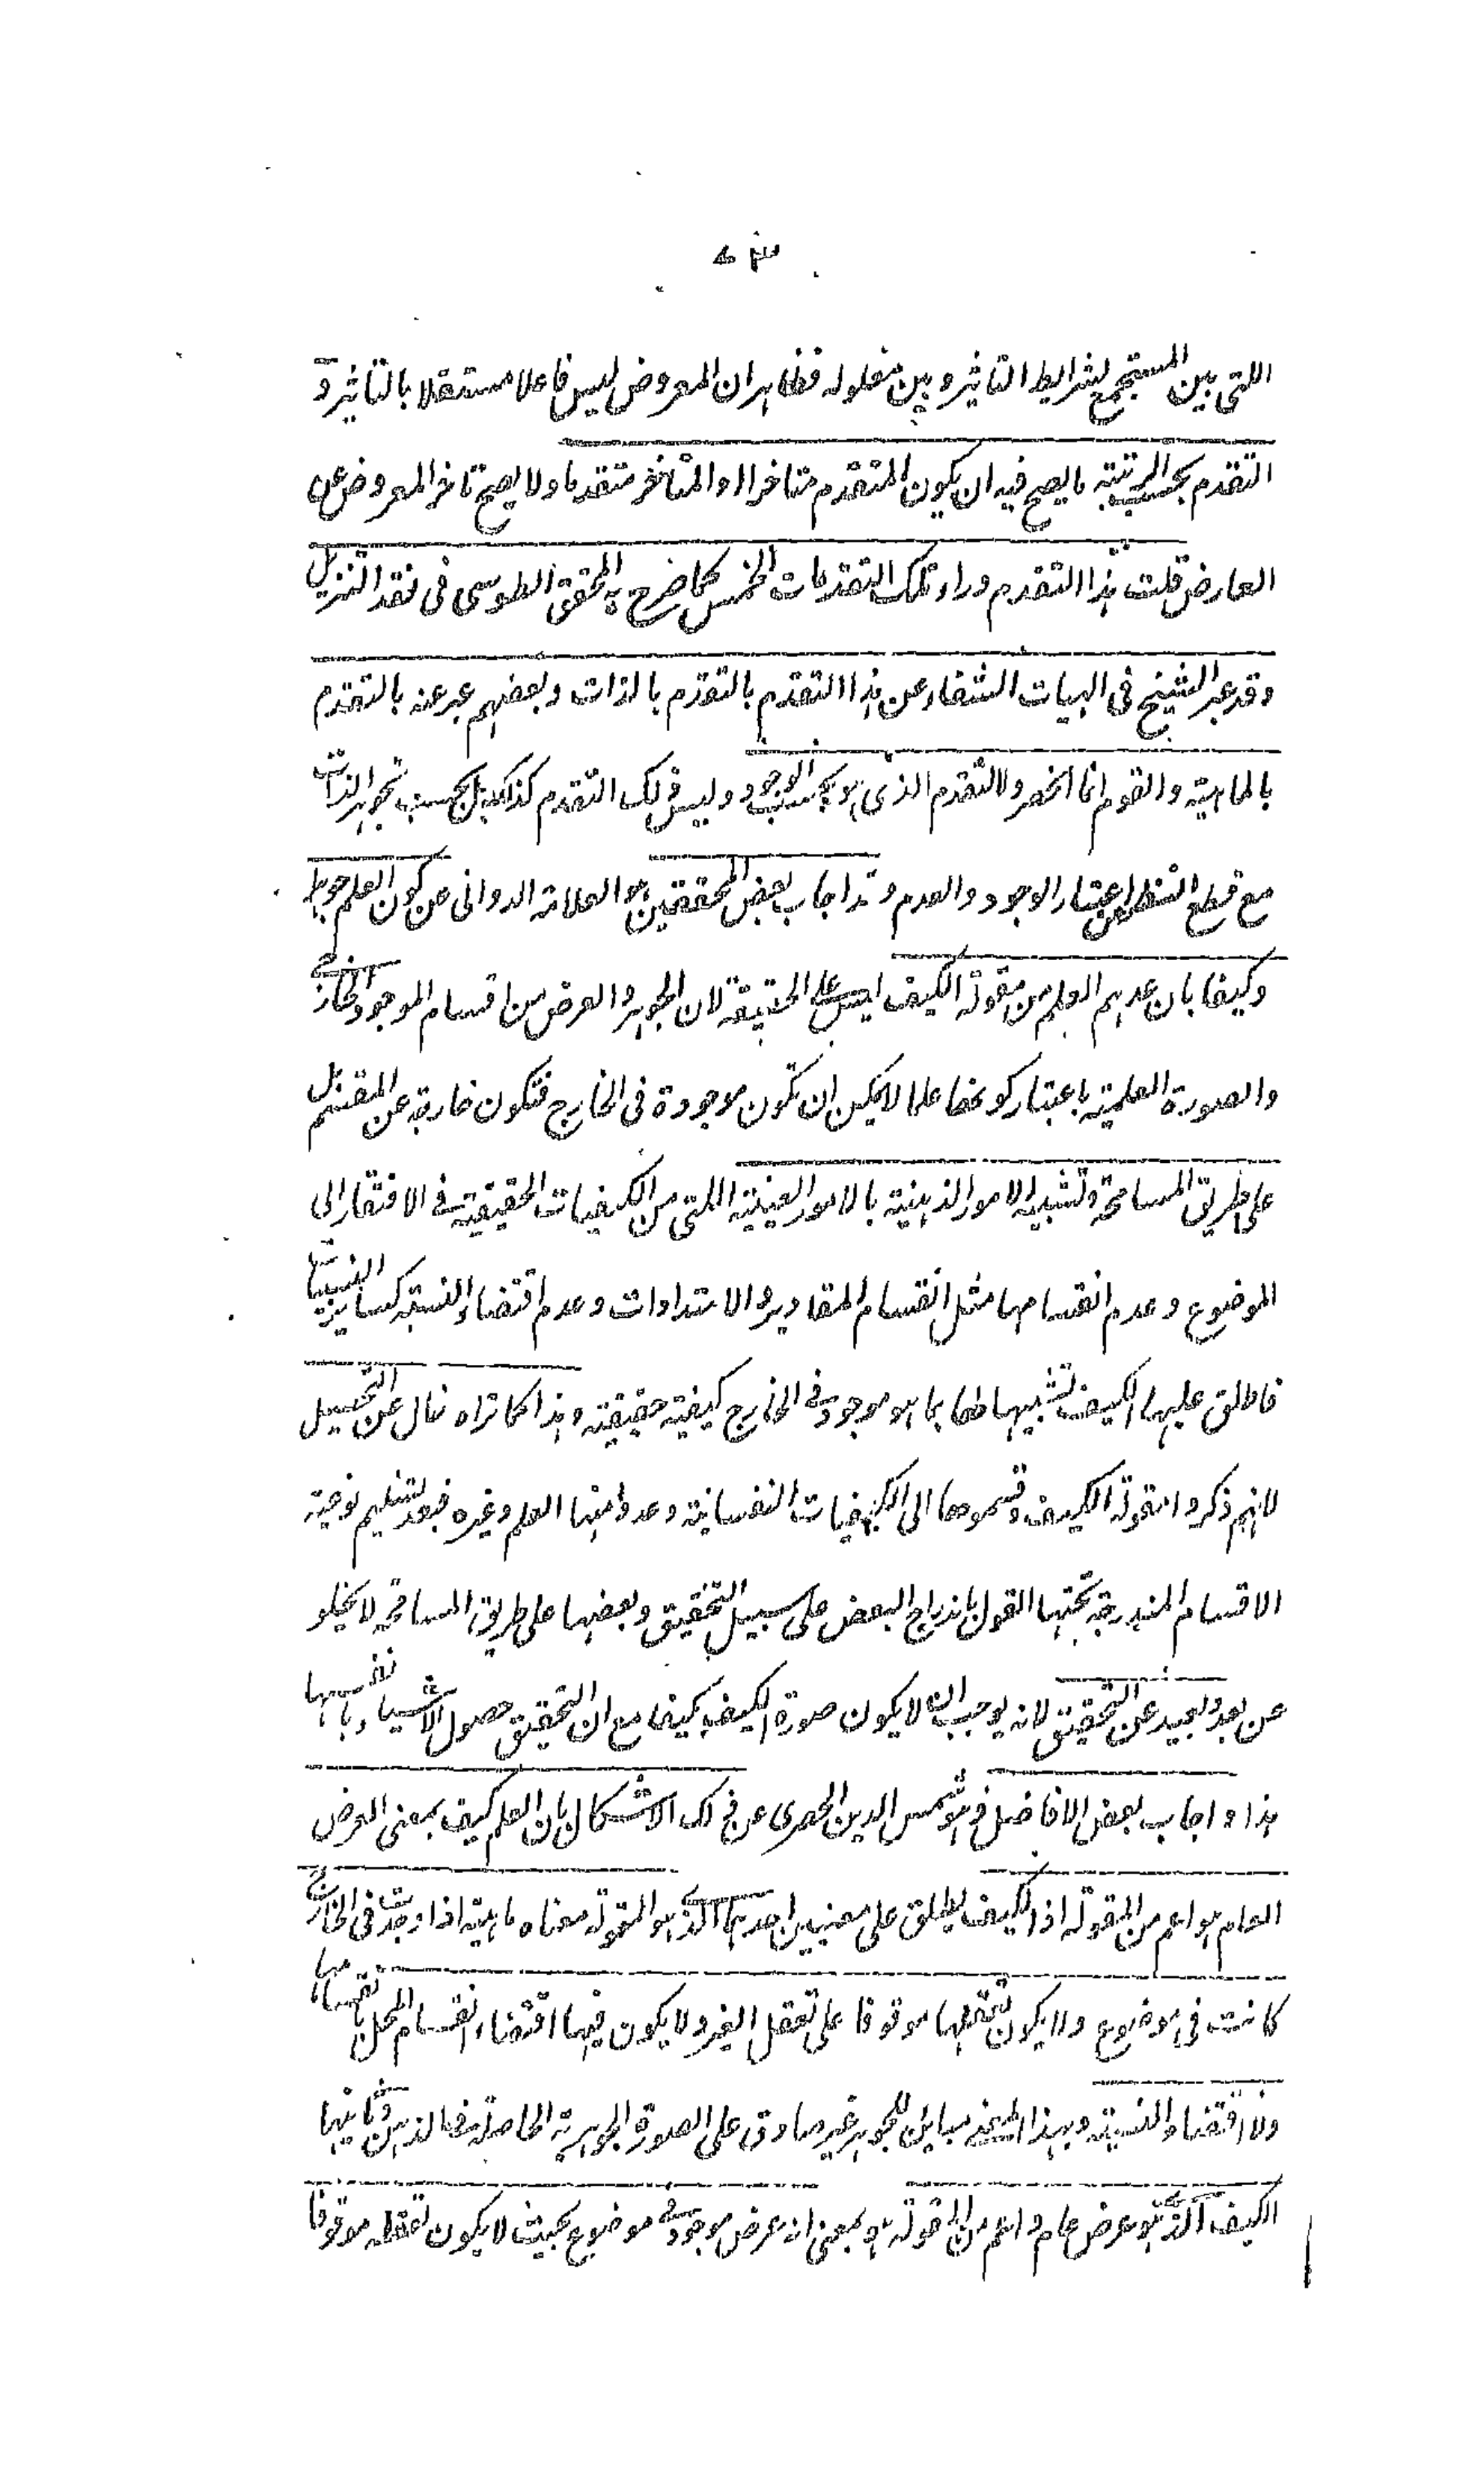 ٤٣
اللتى بين المستجمع لشرايط التاثير و بين معلوله فظاهر ان المعروض ليس فاعلا مستقلا بالتاثير و
التقدم بحسب الرتبته ما يصح فيه ان يكون المتقدم متاخرا او المتاخر متقدما ولا يصح تاخر المعروض عن
العارض قلت هذا التقدم وراء تلك التقدمات الخمس كما صرح به المحقق الطوسى فى نقد التنزيل
وقد عبر الشيخ فى الهيات الشفاء عن هذا التقدم بالتقدم بالذات وبعضهم عبر عنه بالتقدم
بالماهيته والقوم انما انحصروا التقدم الذى هو بحسب الوجود وليس ذلك التقدم كذلك بل بحسب تجوهر الذات
مع قطع النظر عن اعتبار الوجود والعدم وقد اجاب بعض المحققين هو العلامة الدوانى عن كون العلم جوهرا
وكيفا بان عدهم العلم من مقولة الكيف ليس على الحقيقة لان الجوهر والعرض من اقسام الموجود الخارجى
والصورة العلمية باعتبار كونها علما لا يمكن ان تكون موجودة فى الخارج فتكون خارجة عن المقسم بل
على طريق المسامحة وتشبيه الامور الذهنية بالامور العينية اللتى من الكيفيات الحقيقية فى الافتقار الى
الموضوع وعدم انقسامها مثل انقسام المقادير والامتدادات وعدم اقتضاء النسبة كسائر النسبيات
فاطلق عليها الكيف تشبيها لها بما هو موجود فى الخارج كيفية حقيقته وهذا كما تراه خال عن التحصيل
لانهم ذكروا مقولة الكيف وقسموها الى الكيفيات النفسانية وعدوا منها العلم وغيره فبعد تسليم نوعية
الاقسام المندرجة تحتها القول باندراج البعض على سبيل التحقيق وبعضها على طريق المسامحة لا يخلو
عن بعد وبعيد عن التحقيق لانه يوجب ان لا يكون صورة الكيف كيفا مع ان التحقيق حصول الاشياء بانفسها
هذا و اجاب بعض الافاضل هو شمس الدين الحصرى عن ذلك الاشكال بان العلم كيف بمعنى العرض
العام هو اعم من المقولة اذ الكيف يطلق على معنيين احدهما الذى هو المقولة معناه ماهيته اذا وجدت فى الخارج
كانت فى موضوع ولا يكون تعقلها موقوفا على تعقل الغير ولا يكون فيها اقتضاء انقسام المحل بانقسامها
ولا اقتضاء النسبة وبهذا المعنى مباين للجوهر غير صادق على الصورة الجوهرية الحاصلة فى الذهن وثانيها
الكيف الذى هو عرض عام واعم من المقولة هو بمعنى انه عرض موجود فى موضوع بحيث لا يكون تعقله موقوفا